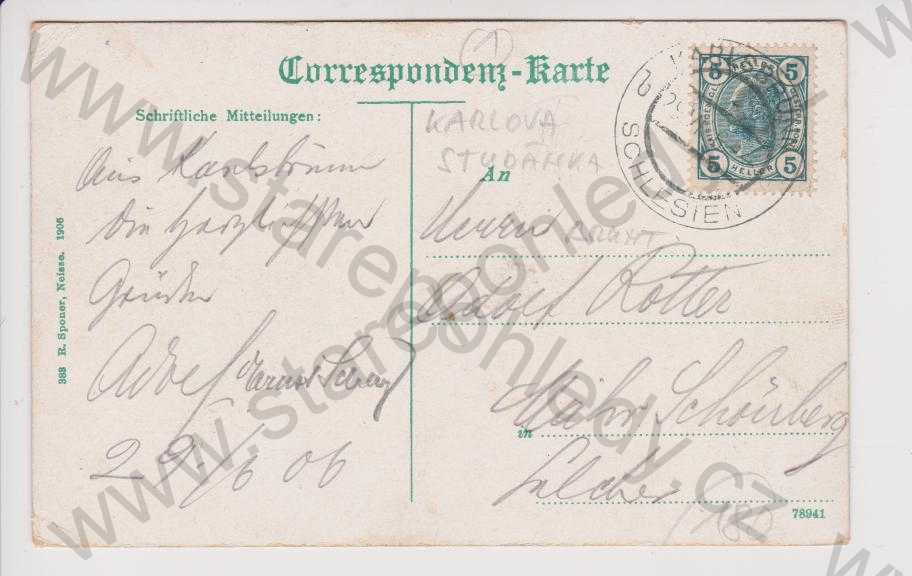 Correspondenz-Karte
Schriftliche Mitteilungen:
Aus Karlsbrunn
die herzlichsten
Grüße
Adolf
29./6 06
383 R. Sponer, Neisse. 1906
KARLOVA
STUDÁNKA
An
Herrn
BRUNT.
Adolf Rotter
in
Mähr Schönberg
78941
5 HELLER 5
5 5
HELLER
SCHLESIEN
29
1
www.starepohledy.cz